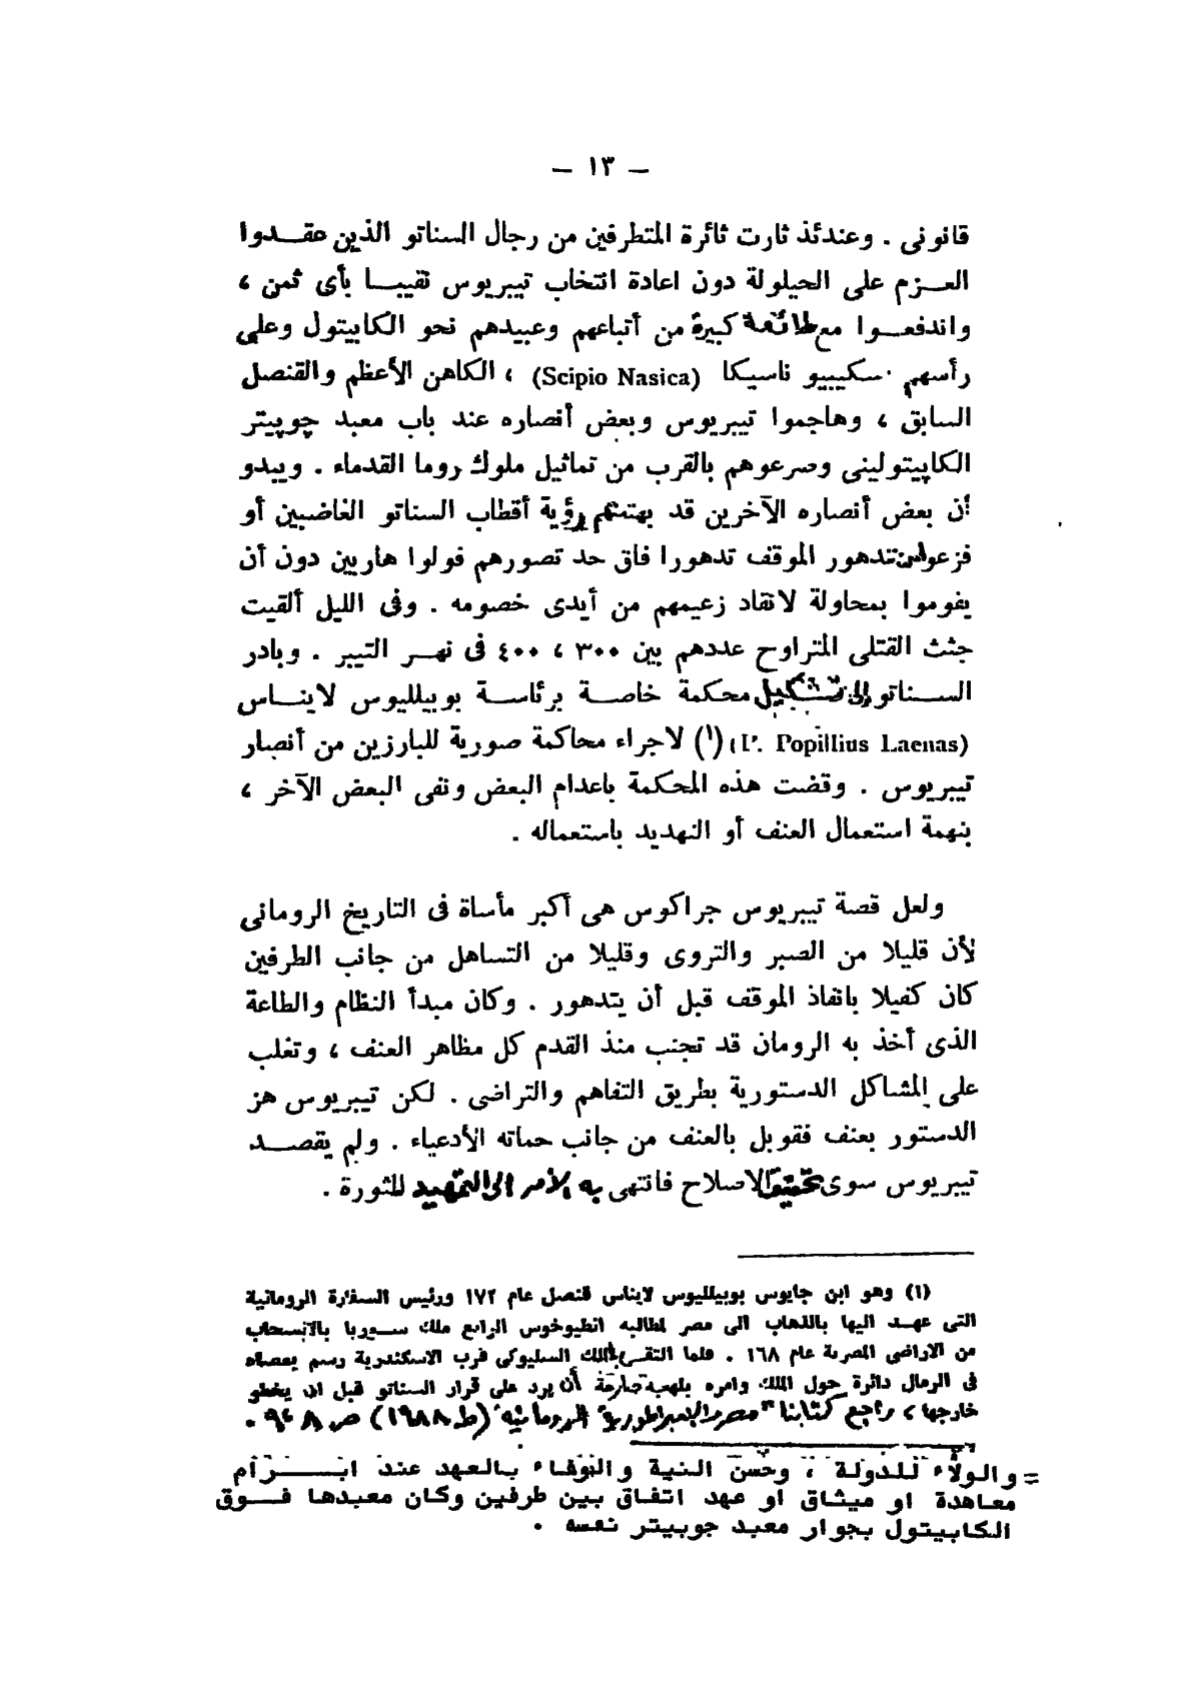 — ١٣ —
قانونى . وعندئذ ثارت ثائرة المتطرفين من رجال السناتو الذين عقـــدوا
العـــزم على الحيلولة دون اعادة انتخاب تيبريوس نقيبـــا بأى ثمن ،
واندفعـــوا مع طائفة كبيرة من أتباعهم وعبيدهم نحو الكابيتول وعلى
رأسهم سكيبيو ناسيكا (Scipio Nasica) ، الكاهن الأعظم والقنصل
السابق ، وهاجموا تيبريوس وبعض أنصاره عند باب معبد چوپيتر
الكاپيتولينى وصرعوهم بالقرب من تماثيل ملوك روما القدماء . ويبدو
أن بعض أنصاره الآخرين قد بهتتهم رؤية أقطاب السناتو الغاضبين أو
فزعوا من تدهور الموقف تدهورا فاق حد تصورهم فولوا هاربين دون أن
يقوموا بمحاولة لانقاذ زعيمهم من أيدى خصومه . وفى الليل ألقيت
جثث القتلى المتراوح عددهم بين ٣٠٠ ، ٤٠٠ فى نهـــر التيبر . وبادر
الســـناتو إلى تشكيل محكمة خاصـــة برئاســـة بوبيلليوس لاينـــاس
(P. Popillius Laenas) (١) لاجراء محاكمة صورية للبارزين من أنصار
تيبريوس . وقضت هذه المحكمة باعدام البعض ونفى البعض الآخر ،
بتهمة استعمال العنف أو التهديد باستعماله .
ولعل قصة تيبريوس جراكوس هى أكبر مأساة فى التاريخ الرومانى
لأن قليلا من الصبر والتروى وقليلا من التساهل من جانب الطرفين
كان كفيلا بانقاذ الموقف قبل أن يتدهور . وكان مبدأ النظام والطاعة
الذى أخذ به الرومان قد تجنب منذ القدم كل مظاهر العنف ، وتغلب
على المشاكل الدستورية بطريق التفاهم والتراضى . لكن تيبريوس هز
الدستور بعنف فقوبل بالعنف من جانب حماته الأدعياء . ولم يقصـــد
تيبريوس سوى تحقيق الاصلاح فانتهى به الأمر الى التمهيد للثورة .
(١) وهو ابن جايوس بوبيلليوس لايناس قنصل عام ١٧٢ ورئيس السفارة الرومانية
التى عهـد اليها بالذهاب الى مصر لمطالبه انطيوخوس الرابع ملك سـوريا بالانسحاب
من الاراضى المصرية عام ١٦٨ . فلما التقى بالملك السليوكى قرب الاسكندرية رسم بعصاه
فى الرمال دائرة حول الملك وامره بلهجة صارمة أن يرد على قرار السناتو قبل ان يخطو
خارجها ، راجع كتابنا "مصر والإمبراطورية الرومانية" (ط ١٩٨٨) ص ٨ - ٩ .
= والولاء للدولة ، وحسن النية والوفاء بالعهد عند ابـــرام
معاهدة او ميثاق او عهد اتفاق بين طرفين وكان معبدها فـــوق
الكابيتول بجوار معبد جوبيتر نفسه .